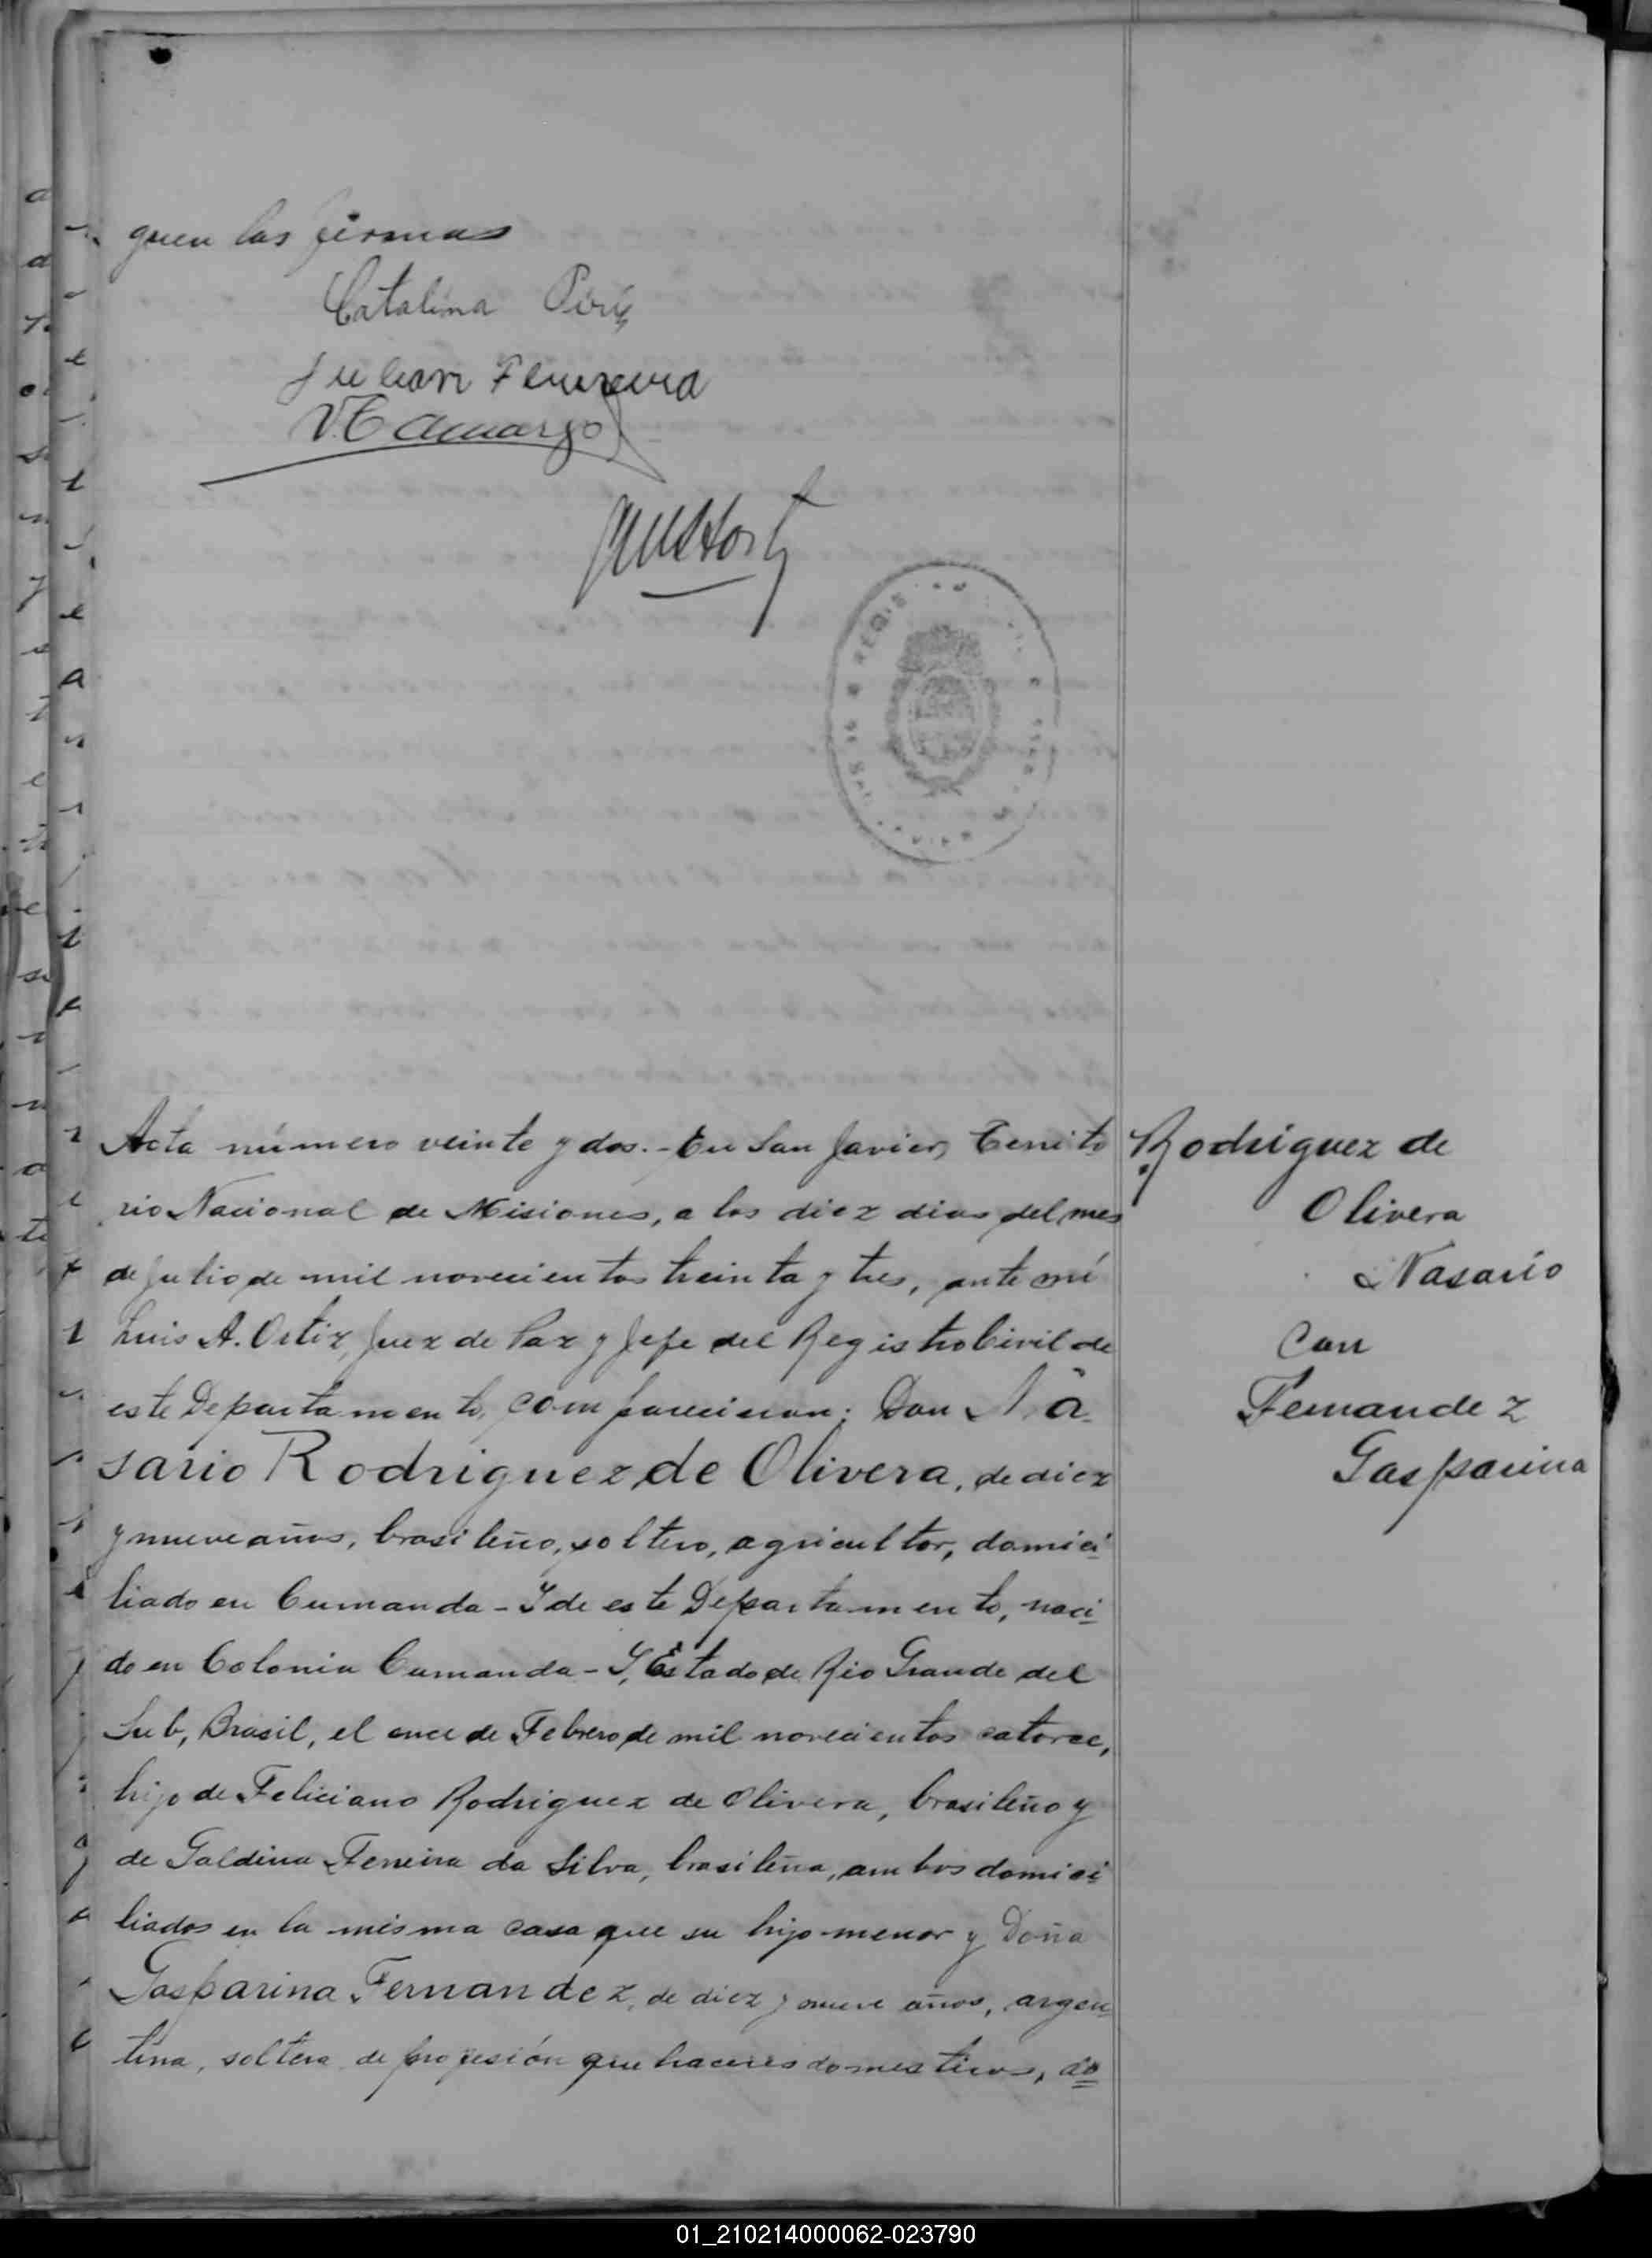 guen las firmas
Catalina
Julian Ferreira
Acta número veinte y dos.- En San Javier, Territo
rio Nacional de Misiones, a los diez dias del mes
de Julio de mil novecientos treinta y tres, ante mí
Luis A. Ortiz, Juez de Paz y Jefe del Registro Civil de
este Departamento, comparecieron: Don Na
sario Rodriguez de Olivera, de diez
y nueve años, brasileño, soltero, agricultor, domici
liado en Cumanda-Y de este Departamento, naci
do en Colonia Cumanda-Y, Estado de Rio Grande del
Sub, Brasil, el once de Febrero de mil novecientos catorce,
hijo de Feliciano Rodriguez de Olivera, brasileño y
de Galdina Ferreira da Silva, brasileña, ambos domici
liados en la misma casa que su hijo menor y Doña
Gasparina Fernandez, de diez y nueve años, argen
tina, soltera de profesión que haceres domesticos, do
Rodriguez de
Olivera
Nasario
con
Fernandez
Gasparina
01_210214000062-023790